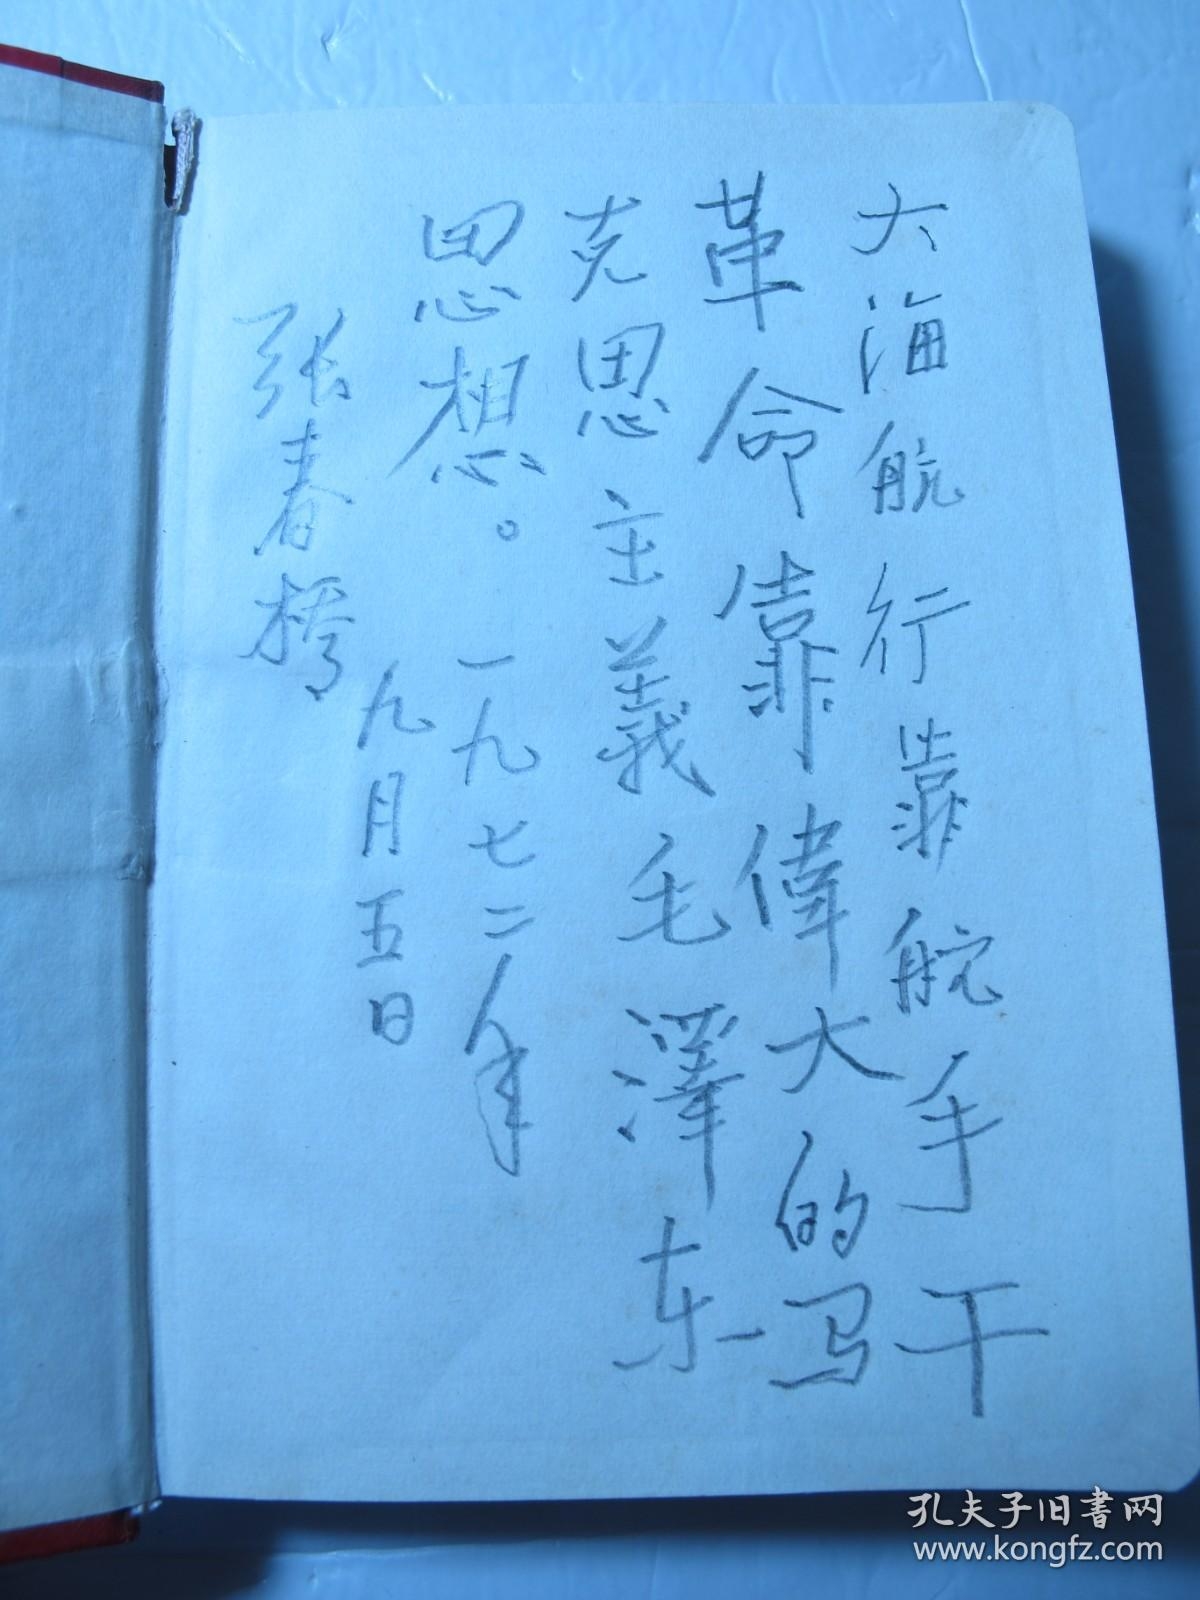 大海航行靠舵手干
革命靠偉大的马
克思主義毛澤东
思想。一九七二年
九月五日
张春桥
孔夫子旧书网
www.kongfz.com